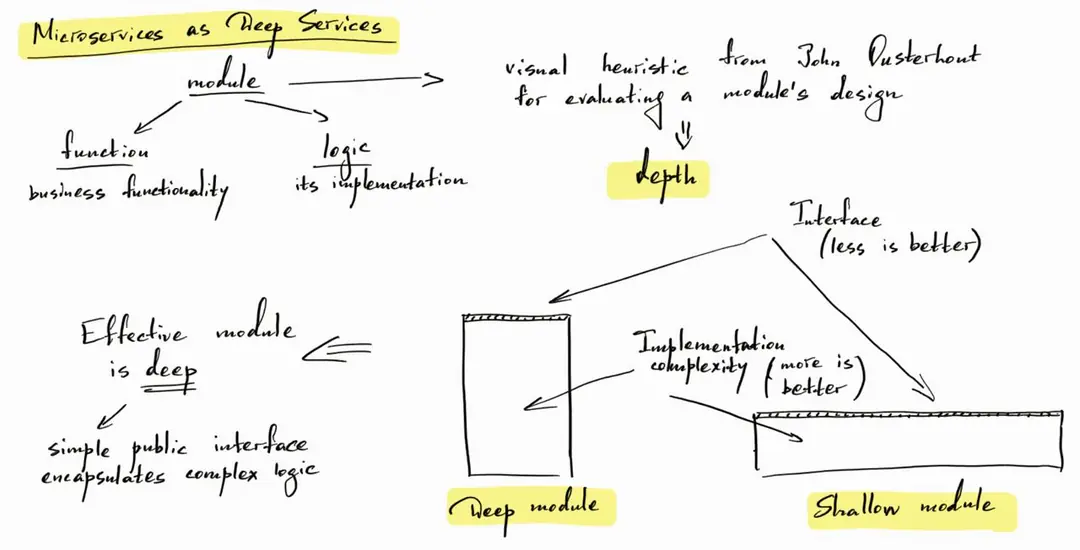 Microservices as Deep Services
module
visual heuristic from John Ousterhout
for evaluating a module's design
function
business functionality
logic
its implementation
depth
Interface
(less is better)
Effective module
is deep
Implementation
complexity (more is
better)
simple public interface
encapsulates complex logic
Deep module
Shallow module